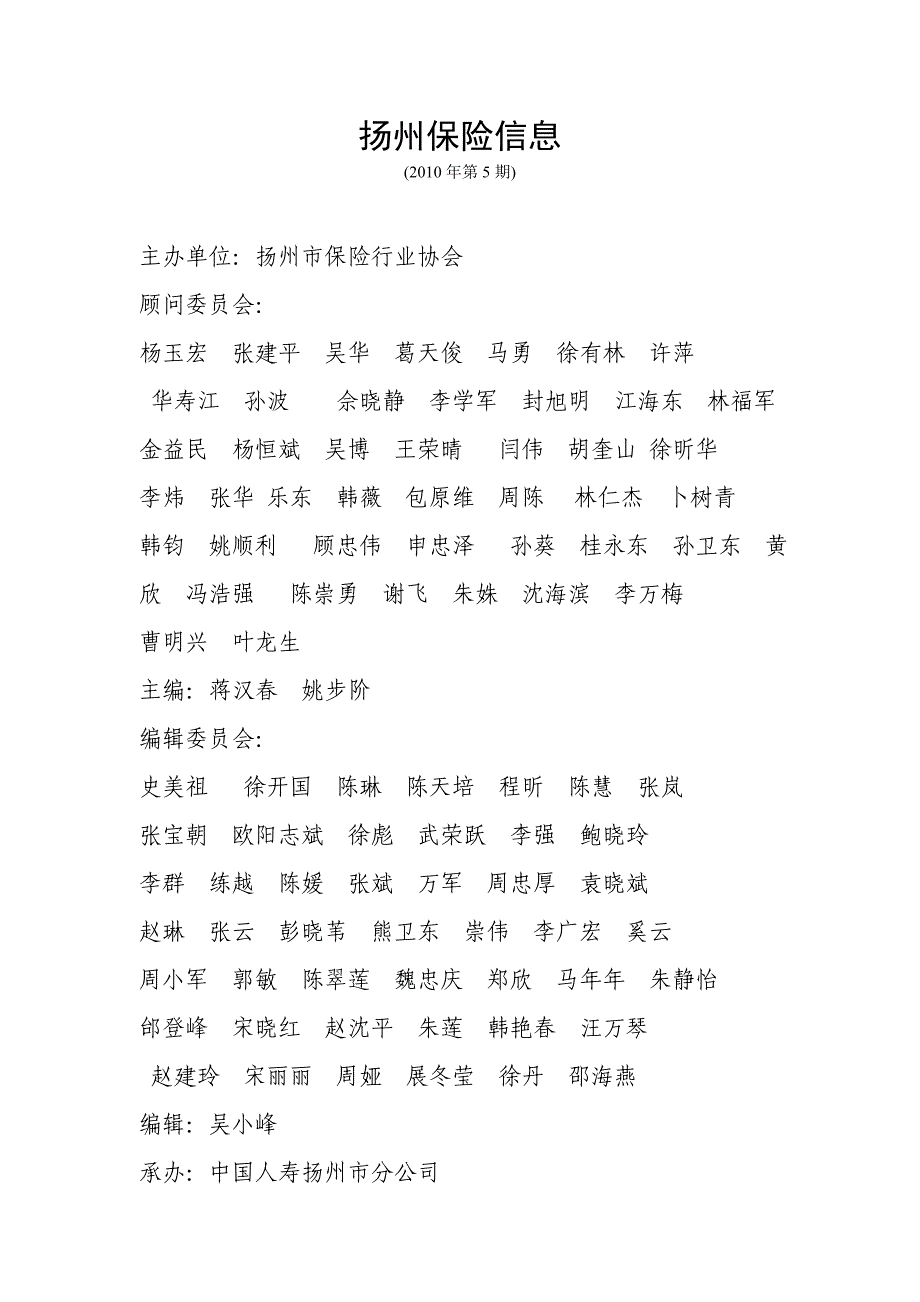 扬州保险信息
(2010 年第 5 期)
主办单位: 扬州市保险行业协会
顾问委员会:
杨玉宏 张建平 吴华 葛天俊 马勇 徐有林 许萍
华寿江 孙波 佘晓静 李学军 封旭明 江海东 林福军
金益民 杨恒斌 吴博 王荣晴 闫伟 胡奎山 徐昕华
李炜 张华 乐东 韩薇 包原维 周陈 林仁杰 卜树青
韩钧 姚顺利 顾忠伟 申忠泽 孙葵 桂永东 孙卫东 黄
欣 冯浩强 陈崇勇 谢飞 朱姝 沈海滨 李万梅
曹明兴 叶龙生
主编: 蒋汉春 姚步阶
编辑委员会:
史美祖 徐开国 陈琳 陈天培 程昕 陈慧 张岚
张宝朝 欧阳志斌 徐彪 武荣跃 李强 鲍晓玲
李群 练越 陈媛 张斌 万军 周忠厚 袁晓斌
赵琳 张云 彭晓苇 熊卫东 崇伟 李广宏 奚云
周小军 郭敏 陈翠莲 魏忠庆 郑欣 马年年 朱静怡
邰登峰 宋晓红 赵沈平 朱莲 韩艳春 汪万琴
赵建玲 宋丽丽 周娅 展冬莹 徐丹 邵海燕
编辑: 吴小峰
承办: 中国人寿扬州市分公司